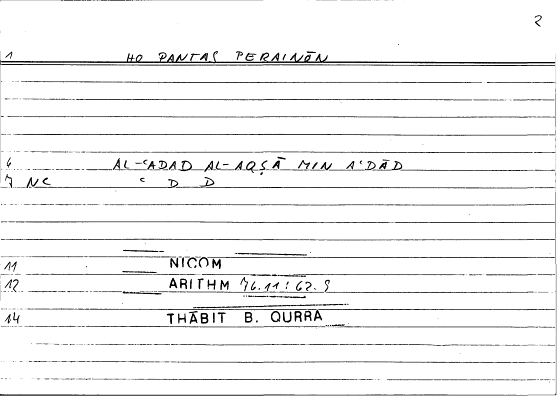 2
1 HO PANTAS PERAINŌN
6 AL-ʿADAD AL-AQṢĀ MIN AʿDĀD
7 NC ʿ D D
11 NICOM
12 ARITHM 76.11 : 62.9
14 THĀBIT B. QURRA